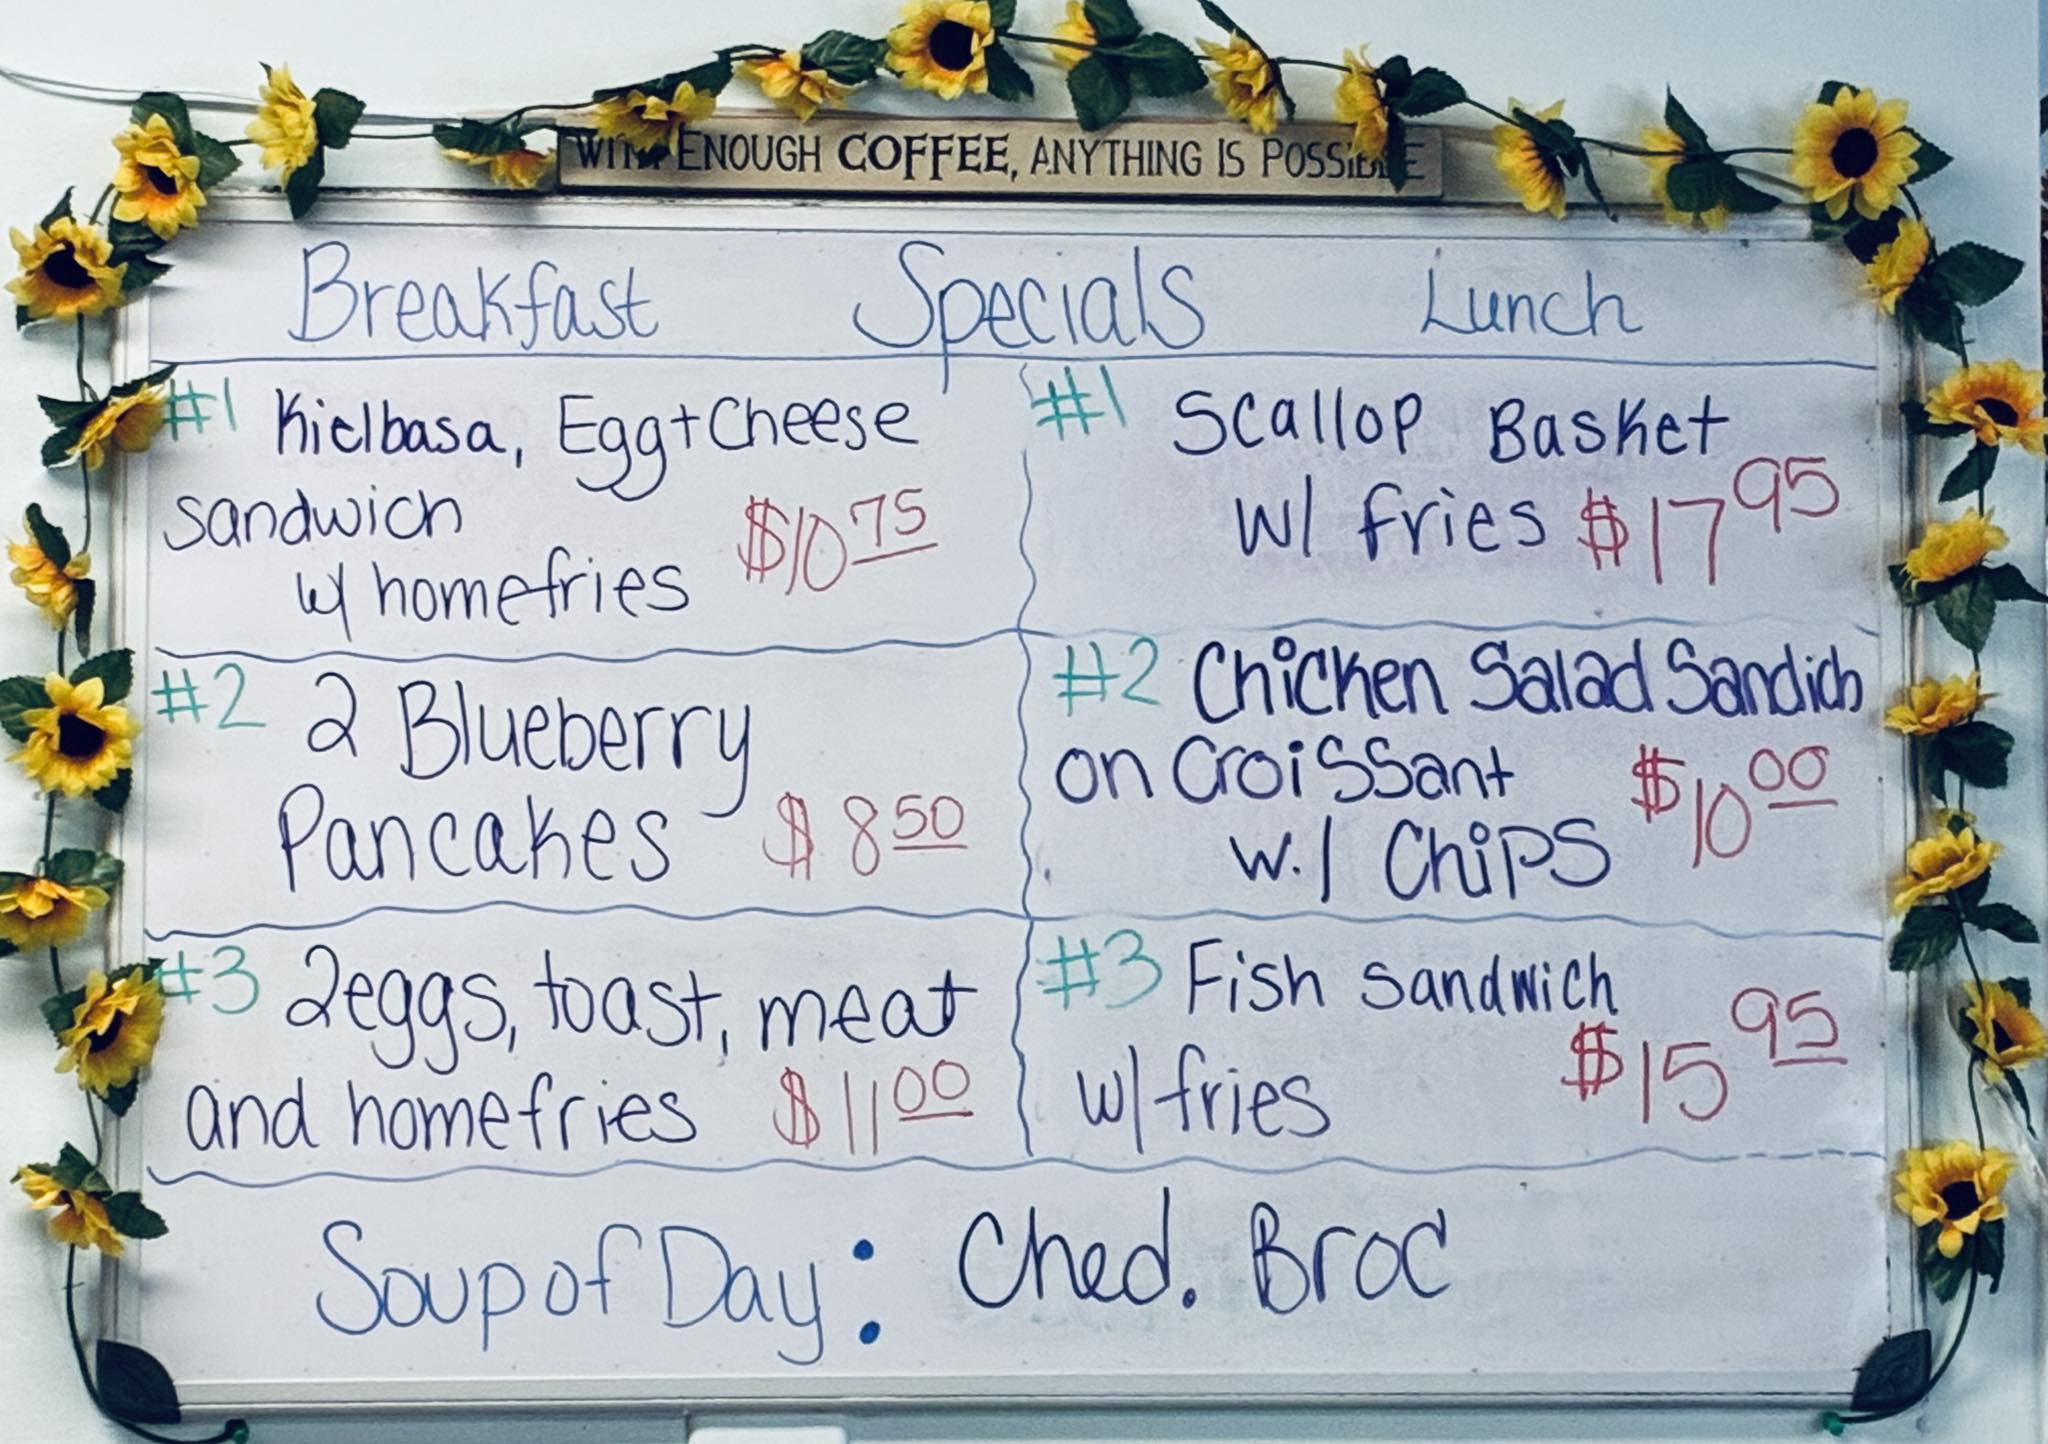 WITH ENOUGH COFFEE, ANYTHING IS POSSIBLE
Breakfast Specials Lunch
#1 Kielbasa, Egg + Cheese
sandwich $10 75
w/ homefries
#2 2 Blueberry
Pancakes $8 50
#3 2 eggs, toast, meat
and homefries $11 00
#1 Scallop Basket
w/ fries $17 95
#2 Chicken Salad Sandich
on Croissant $10 00
w./ Chips
#3 Fish Sandwich
w/ fries $15 95
Soup of Day: Ched. Broc